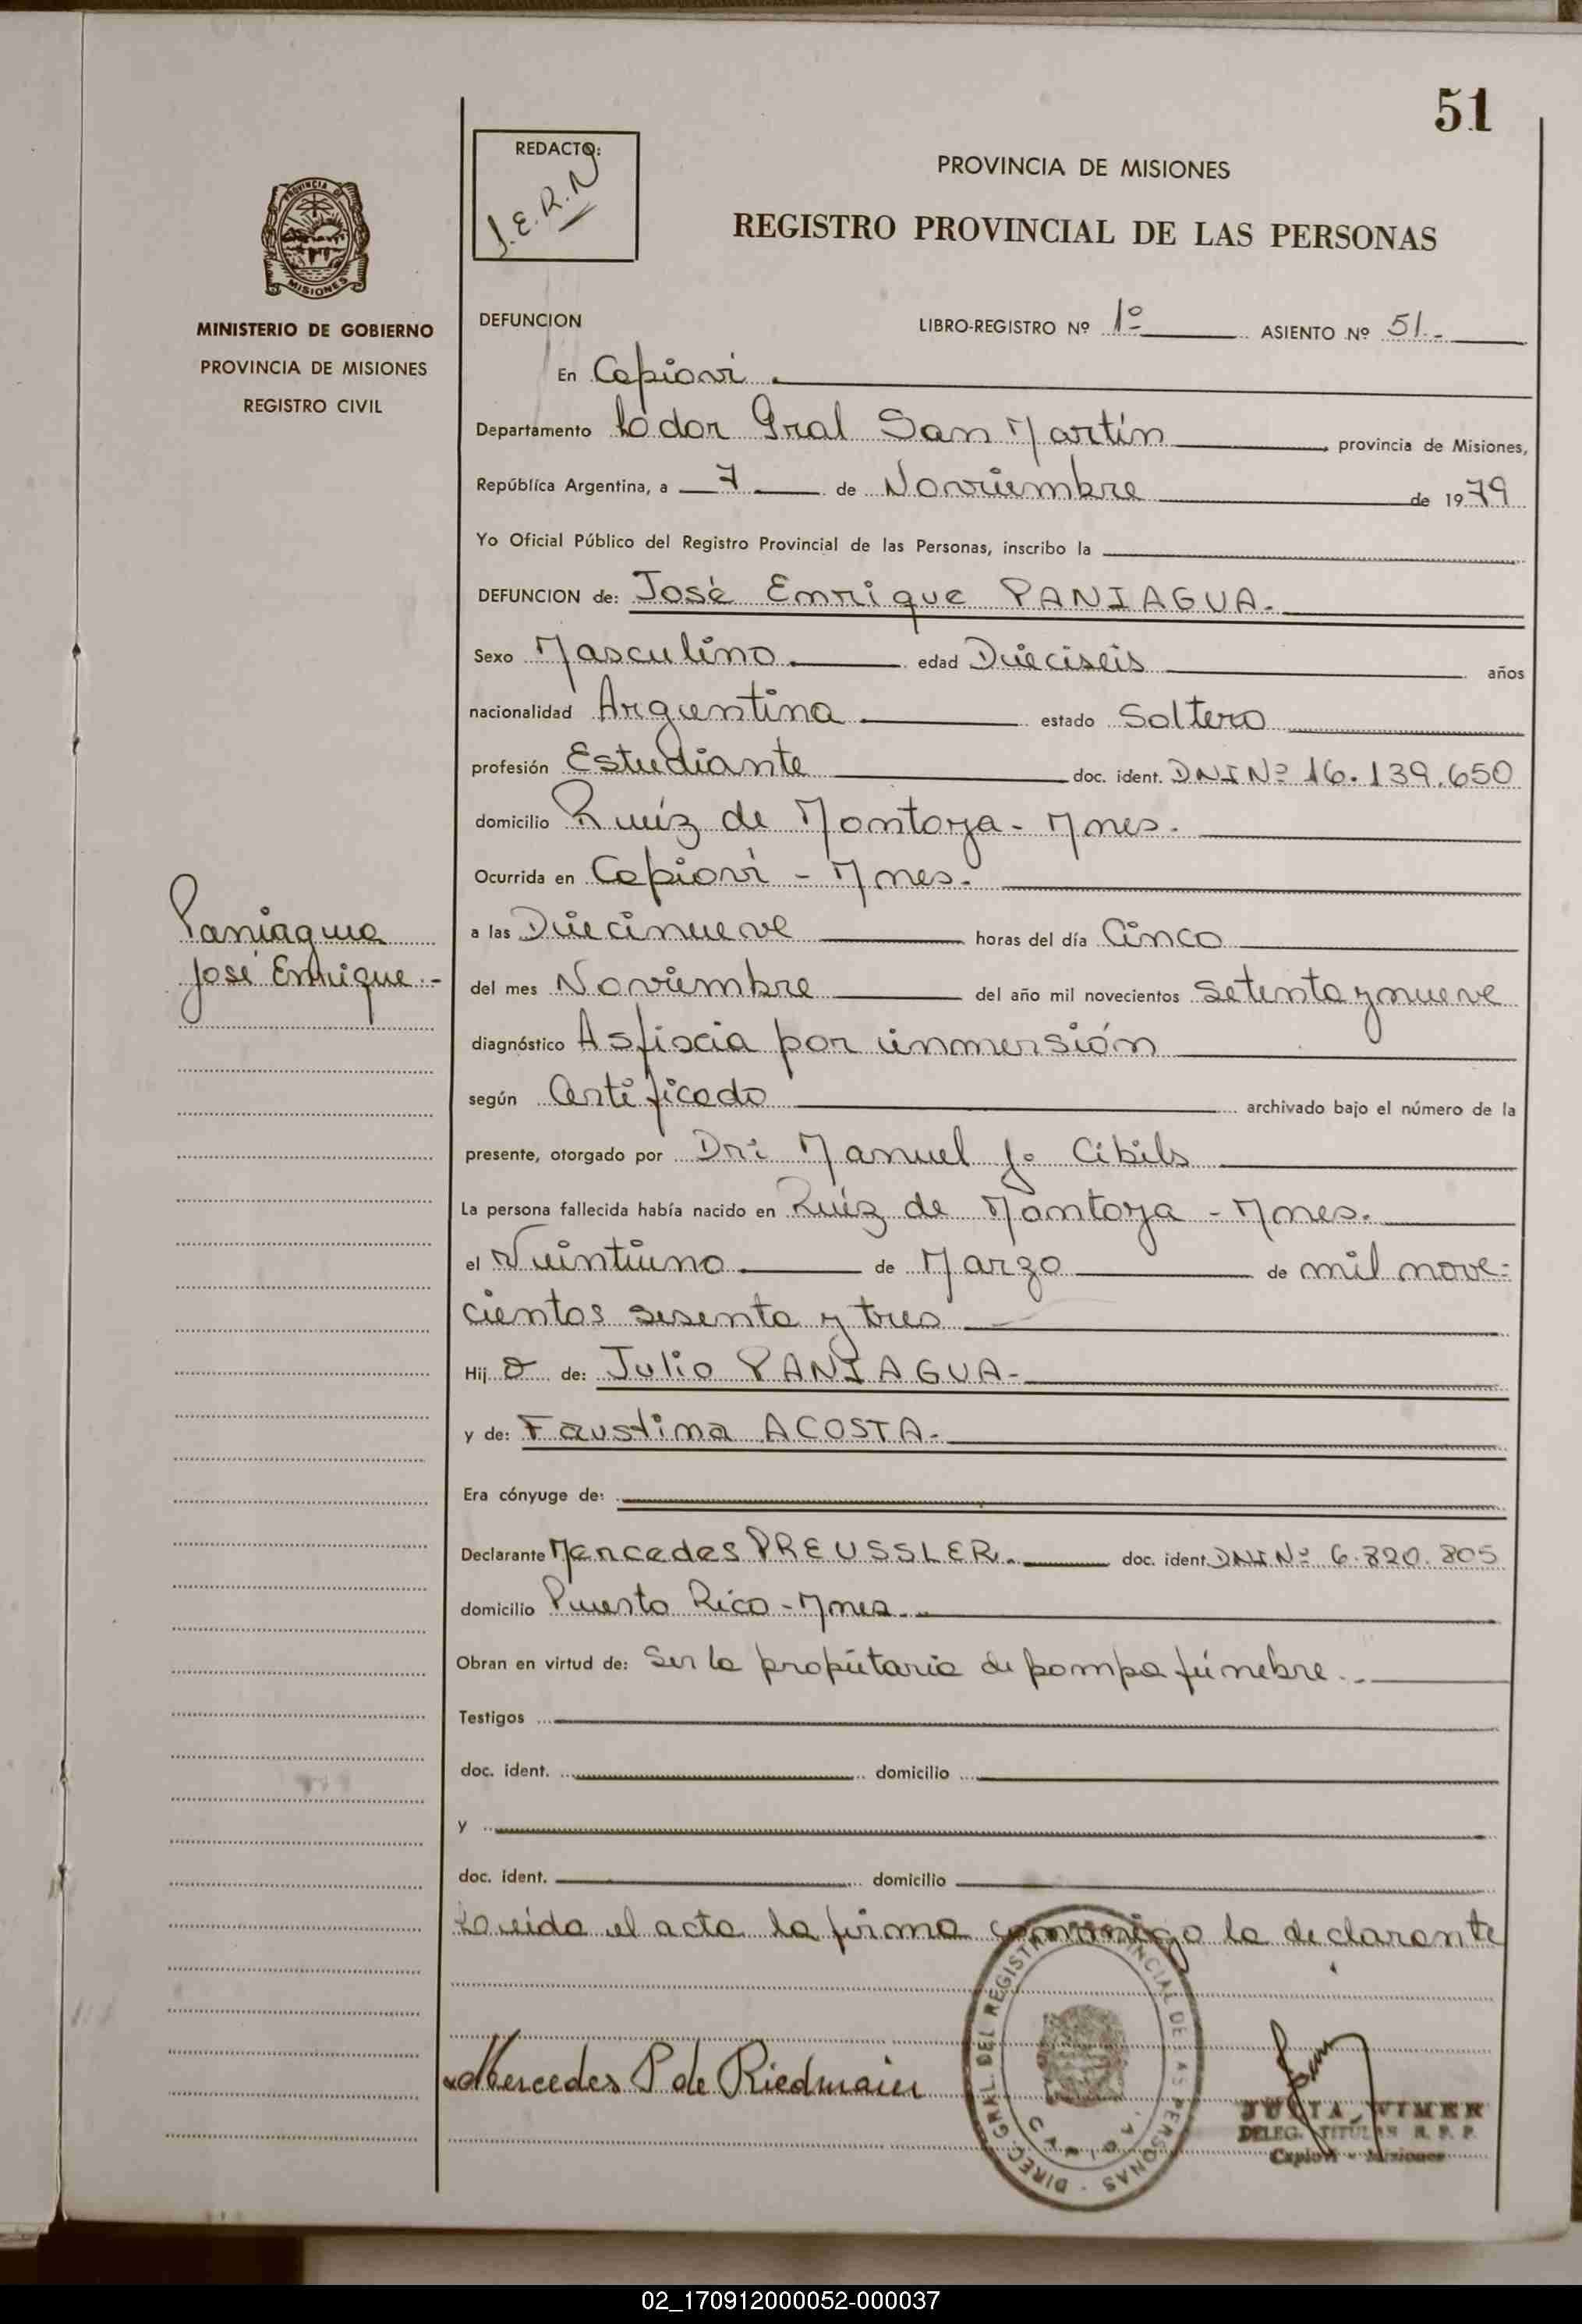 51
REDACTO:
J.E.R.N
PROVINCIA DE MISIONES
REGISTRO PROVINCIAL DE LAS PERSONAS
PROVINCIA DE
MISIONES
MINISTERIO DE GOBIERNO
PROVINCIA DE MISIONES
REGISTRO CIVIL
DEFUNCION LIBRO-REGISTRO Nº 1º ASIENTO Nº 51.-
En Capioví.
Departamento Lodor Gral San Martín, provincia de Misiones,
República Argentina, a 7 de Noviembre de 1979
Yo Oficial Público del Registro Provincial de las Personas, inscribo la
DEFUNCION de: José Enrique PANIAGUA.
Sexo Masculino. edad Dieciseis años
nacionalidad Argentina estado Soltero
profesión Estudiante doc. ident. DNI Nº 16.139.650
domicilio Ruíz de Montoya - Mnes.
Ocurrida en Capioví - Mnes.
a las Diecinueve horas del día Cinco
del mes Noviembre del año mil novecientos setenta y nueve
diagnóstico Asfixia por inmersión
según Certificado archivado bajo el número de la
presente, otorgado por Dr: Manuel J. Cibils
La persona fallecida había nacido en Ruíz de Montoya - Mnes.
el Veintiuno de Marzo de mil nove=
cientos sesenta y tres
Hijo de: Julio PANIAGUA-
y de: Faustina ACOSTA.
Era cónyuge de:
Declarante Mercedes PREUSSLER. doc. ident. DNI Nº 6.820.805
domicilio Puerto Rico - Mnes.
Obran en virtud de: Ser la propietaria de pompa fúnebre.
Testigos
doc. ident. domicilio
y
doc. ident. domicilio
Leída el acta la firma conmigo la declarante
Paniagua
José Enrique.-
Mercedes P de Riedmaier
DIREC. GRAL. DEL REGISTRO PROVINCIAL DE LAS PERSONAS
JULIA VIMER
DELEG. TITULAR R. P. P.
Capioví - Misiones
02_170912000052-000037